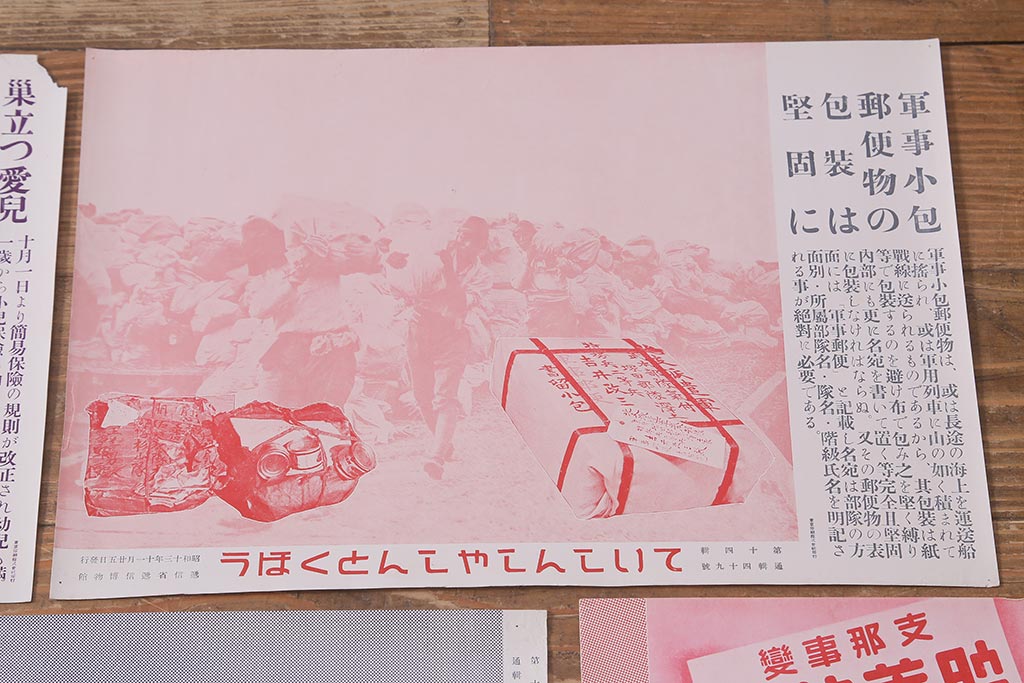 軍事小包
郵便物の
包装は
堅固に
軍事小包郵便物は、或は長途の海上を運送船
に搖られ、或は軍用列車に山の如く積まれて
戰線に送られるものであるから、其包裝は紙
等で包裝するのを避け布で包み之を堅く縛り
内部にも更に名宛を書いて置く等完全且堅固
に包裝しなければならぬ。又その郵便物の表
面には「軍事郵便」と記載し名宛は部隊の方
面別・所屬部隊名・隊名・階級氏名を明記さ
れる事が絕對に必要である。
第十四輯
通輯四十九號
ていしんしやしんとくほう
昭和十三年十一月廿五日發行
遞信省遞信博物館
吉井改三
書留小包
巢立つ愛兒
十月一日より簡易保險の規則が改正され幼兒の滿
支那事變